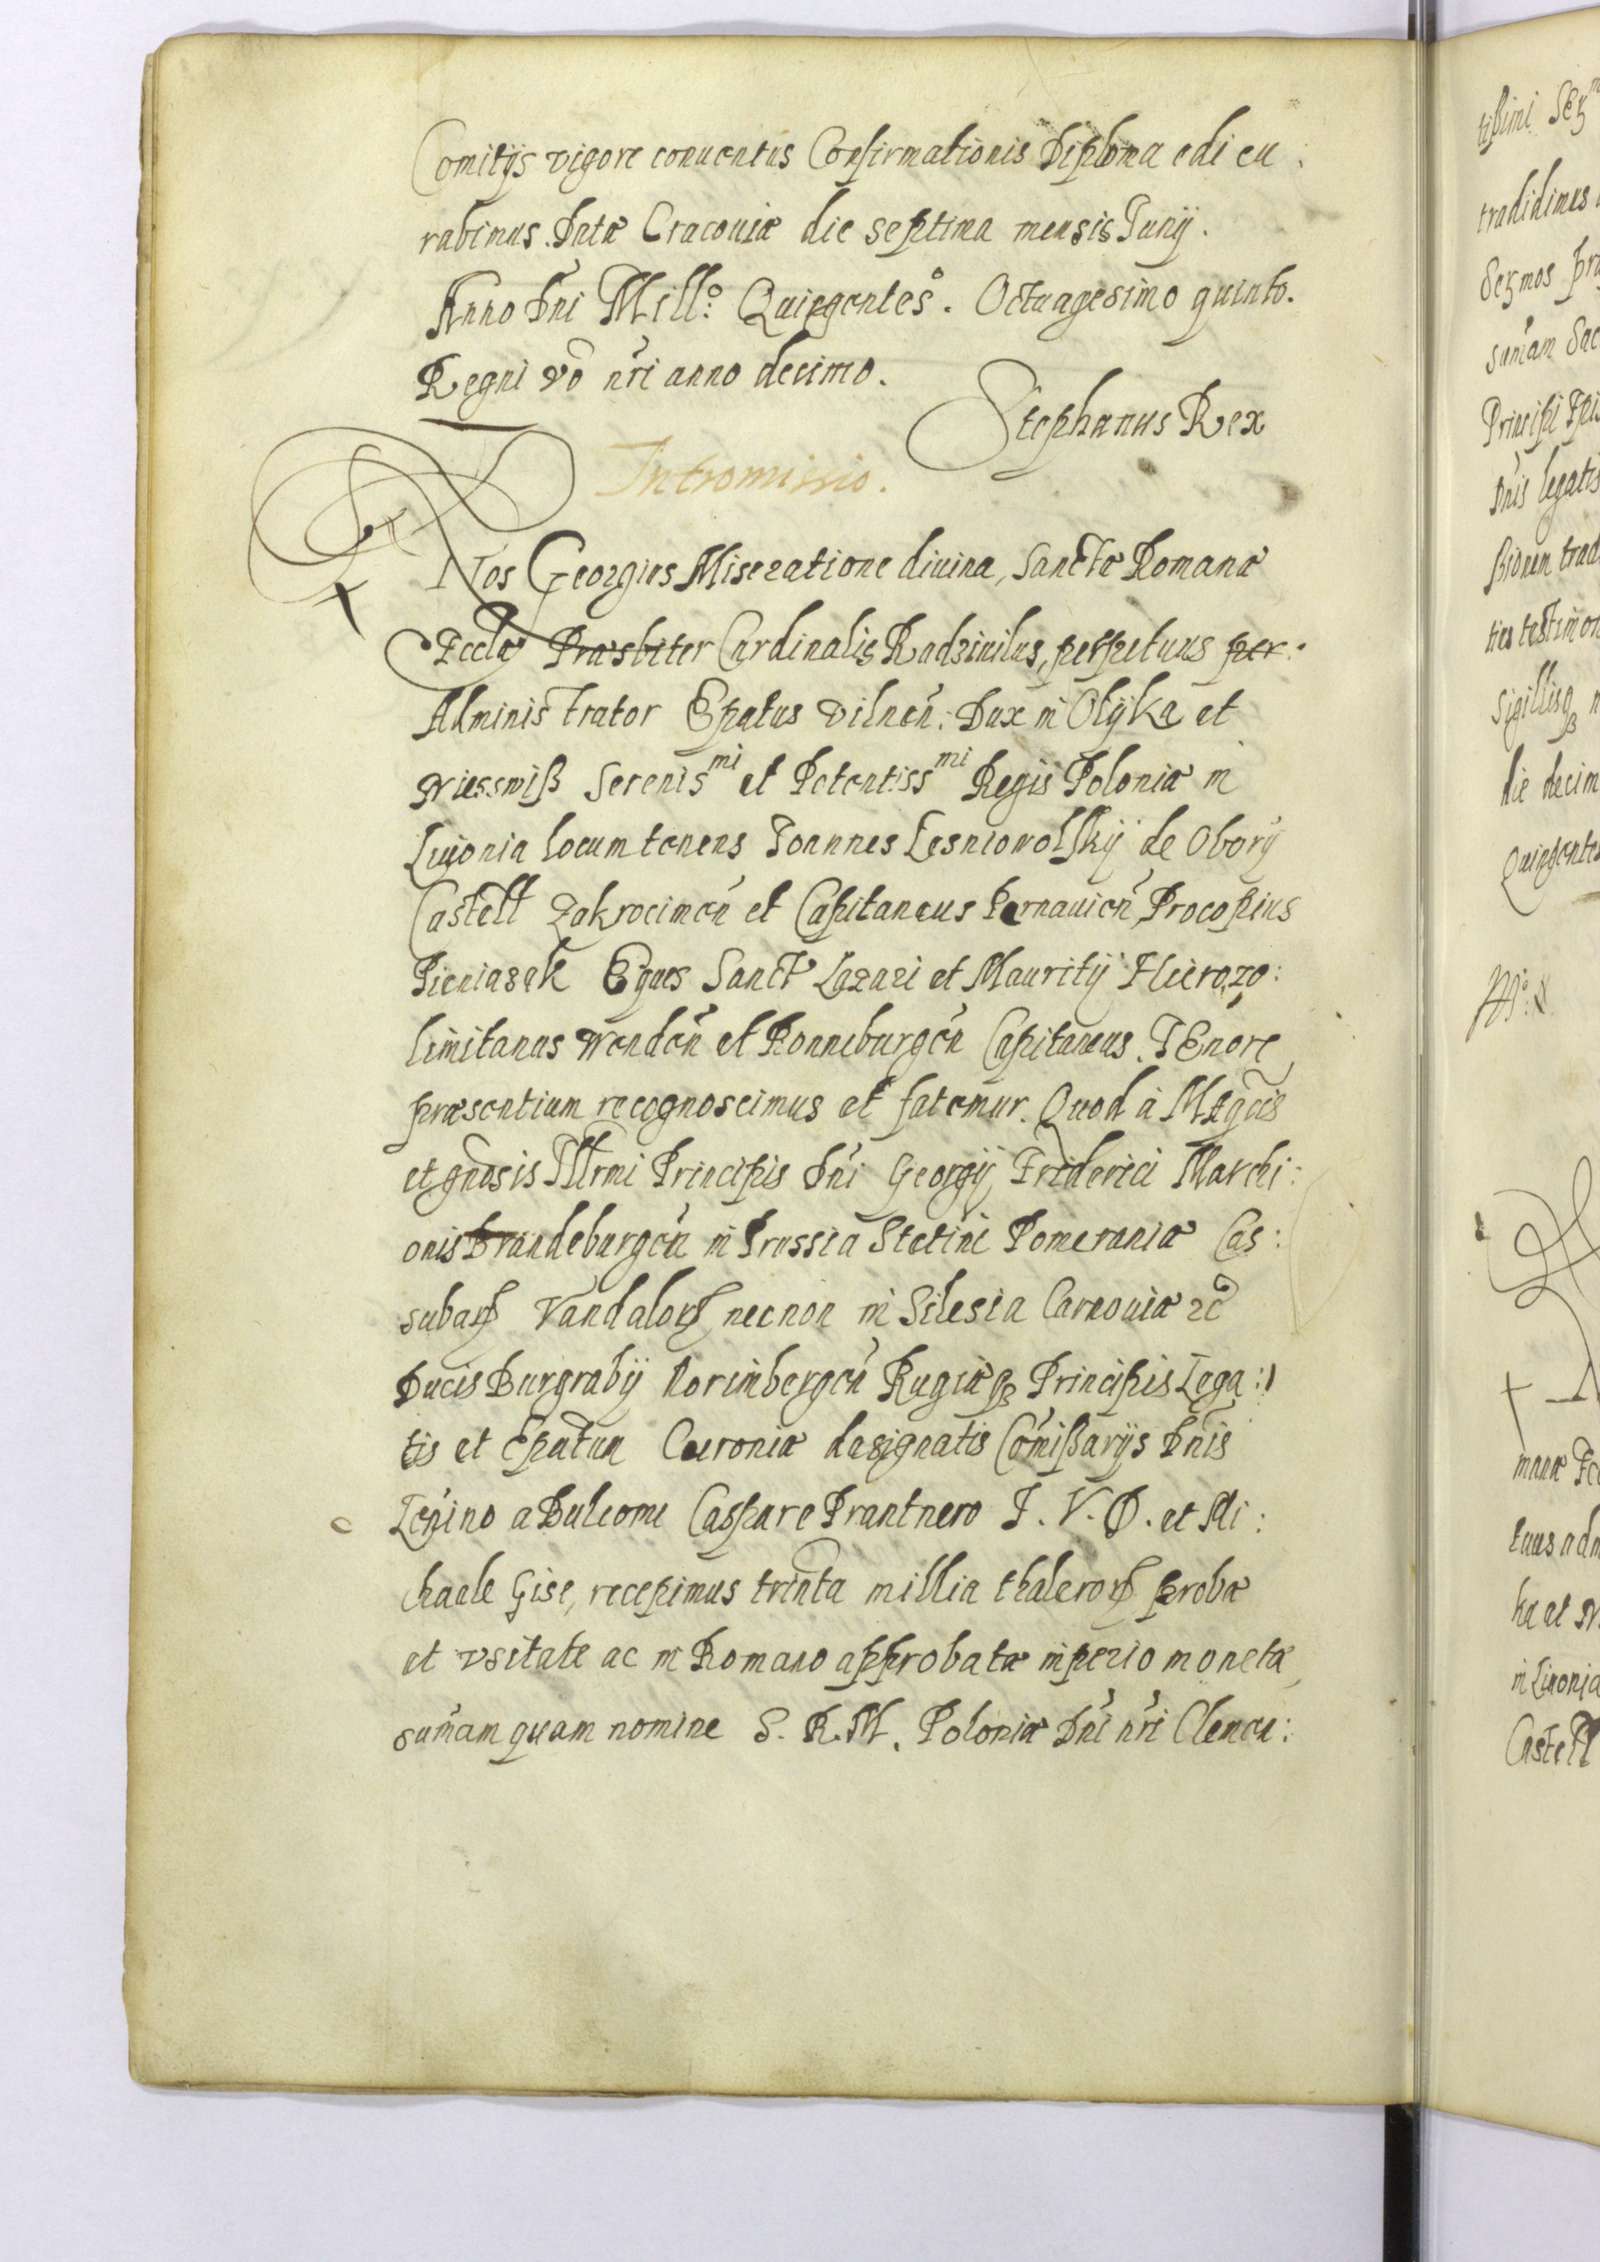 Comitijs vigore conuentus Confirmationis Diploma edi cu:
rabimus. Datæ Cracouiæ die septima mensis Junij.
Anno Dni Mill:o Quingentes.o Octuagesimo quinto.
Regni vo nri anno decimo.
Stephanus Rex
Intromissio.
Nos Georgius Miseratione diuina, Sanctæ Romanæ
Eccle Præsbiter Cardinalis Radziuilus, perpetuus per:
Administrator Epatus Vilnen: Dux in Olijka et
Niesswiß Serenismi et Potentissmi Regis Poloniæ in
Liuonia locumtenens Joannes Lesniowolskij de Obory
Castell Zakrocimen et Capitaneus Pernauien, Procopius
Pieniazek Eques Sanct Lazari et Mauritij Hierozo:
limitanus Wenden et Ronneburgen Capitaneus. Tenore
præsentium recognoscimus et fatemur. Quod à Magcis
et gnosis Illrmi Principis Dni Georgij Friderici Marchi:
onis Brandeburgen in Prussia Stetini Pomeraniæ Cas:
subarꝝ Vandalorꝝ necnon in Silesia Carnouiæ ꝛc
Ducis Burgrabij Norimbergen Rugiæqꝫ Principis Lega:
tis et Epatum Curoniæ designatis Comißarijs Dnis
Leuino a Buleome Caspare Prantnero J. V. D. et Mi:
chaele Gise, recepimus trinta millia thalerorꝝ probæ
et vsitate ac in Romano approbatæ imperio monetæ,
sumam quam nomine S. R. M. Poloniæ Dni nri Clemen:
tißimi
tradidimus
legatis
die decim
in Liuonia
Castell